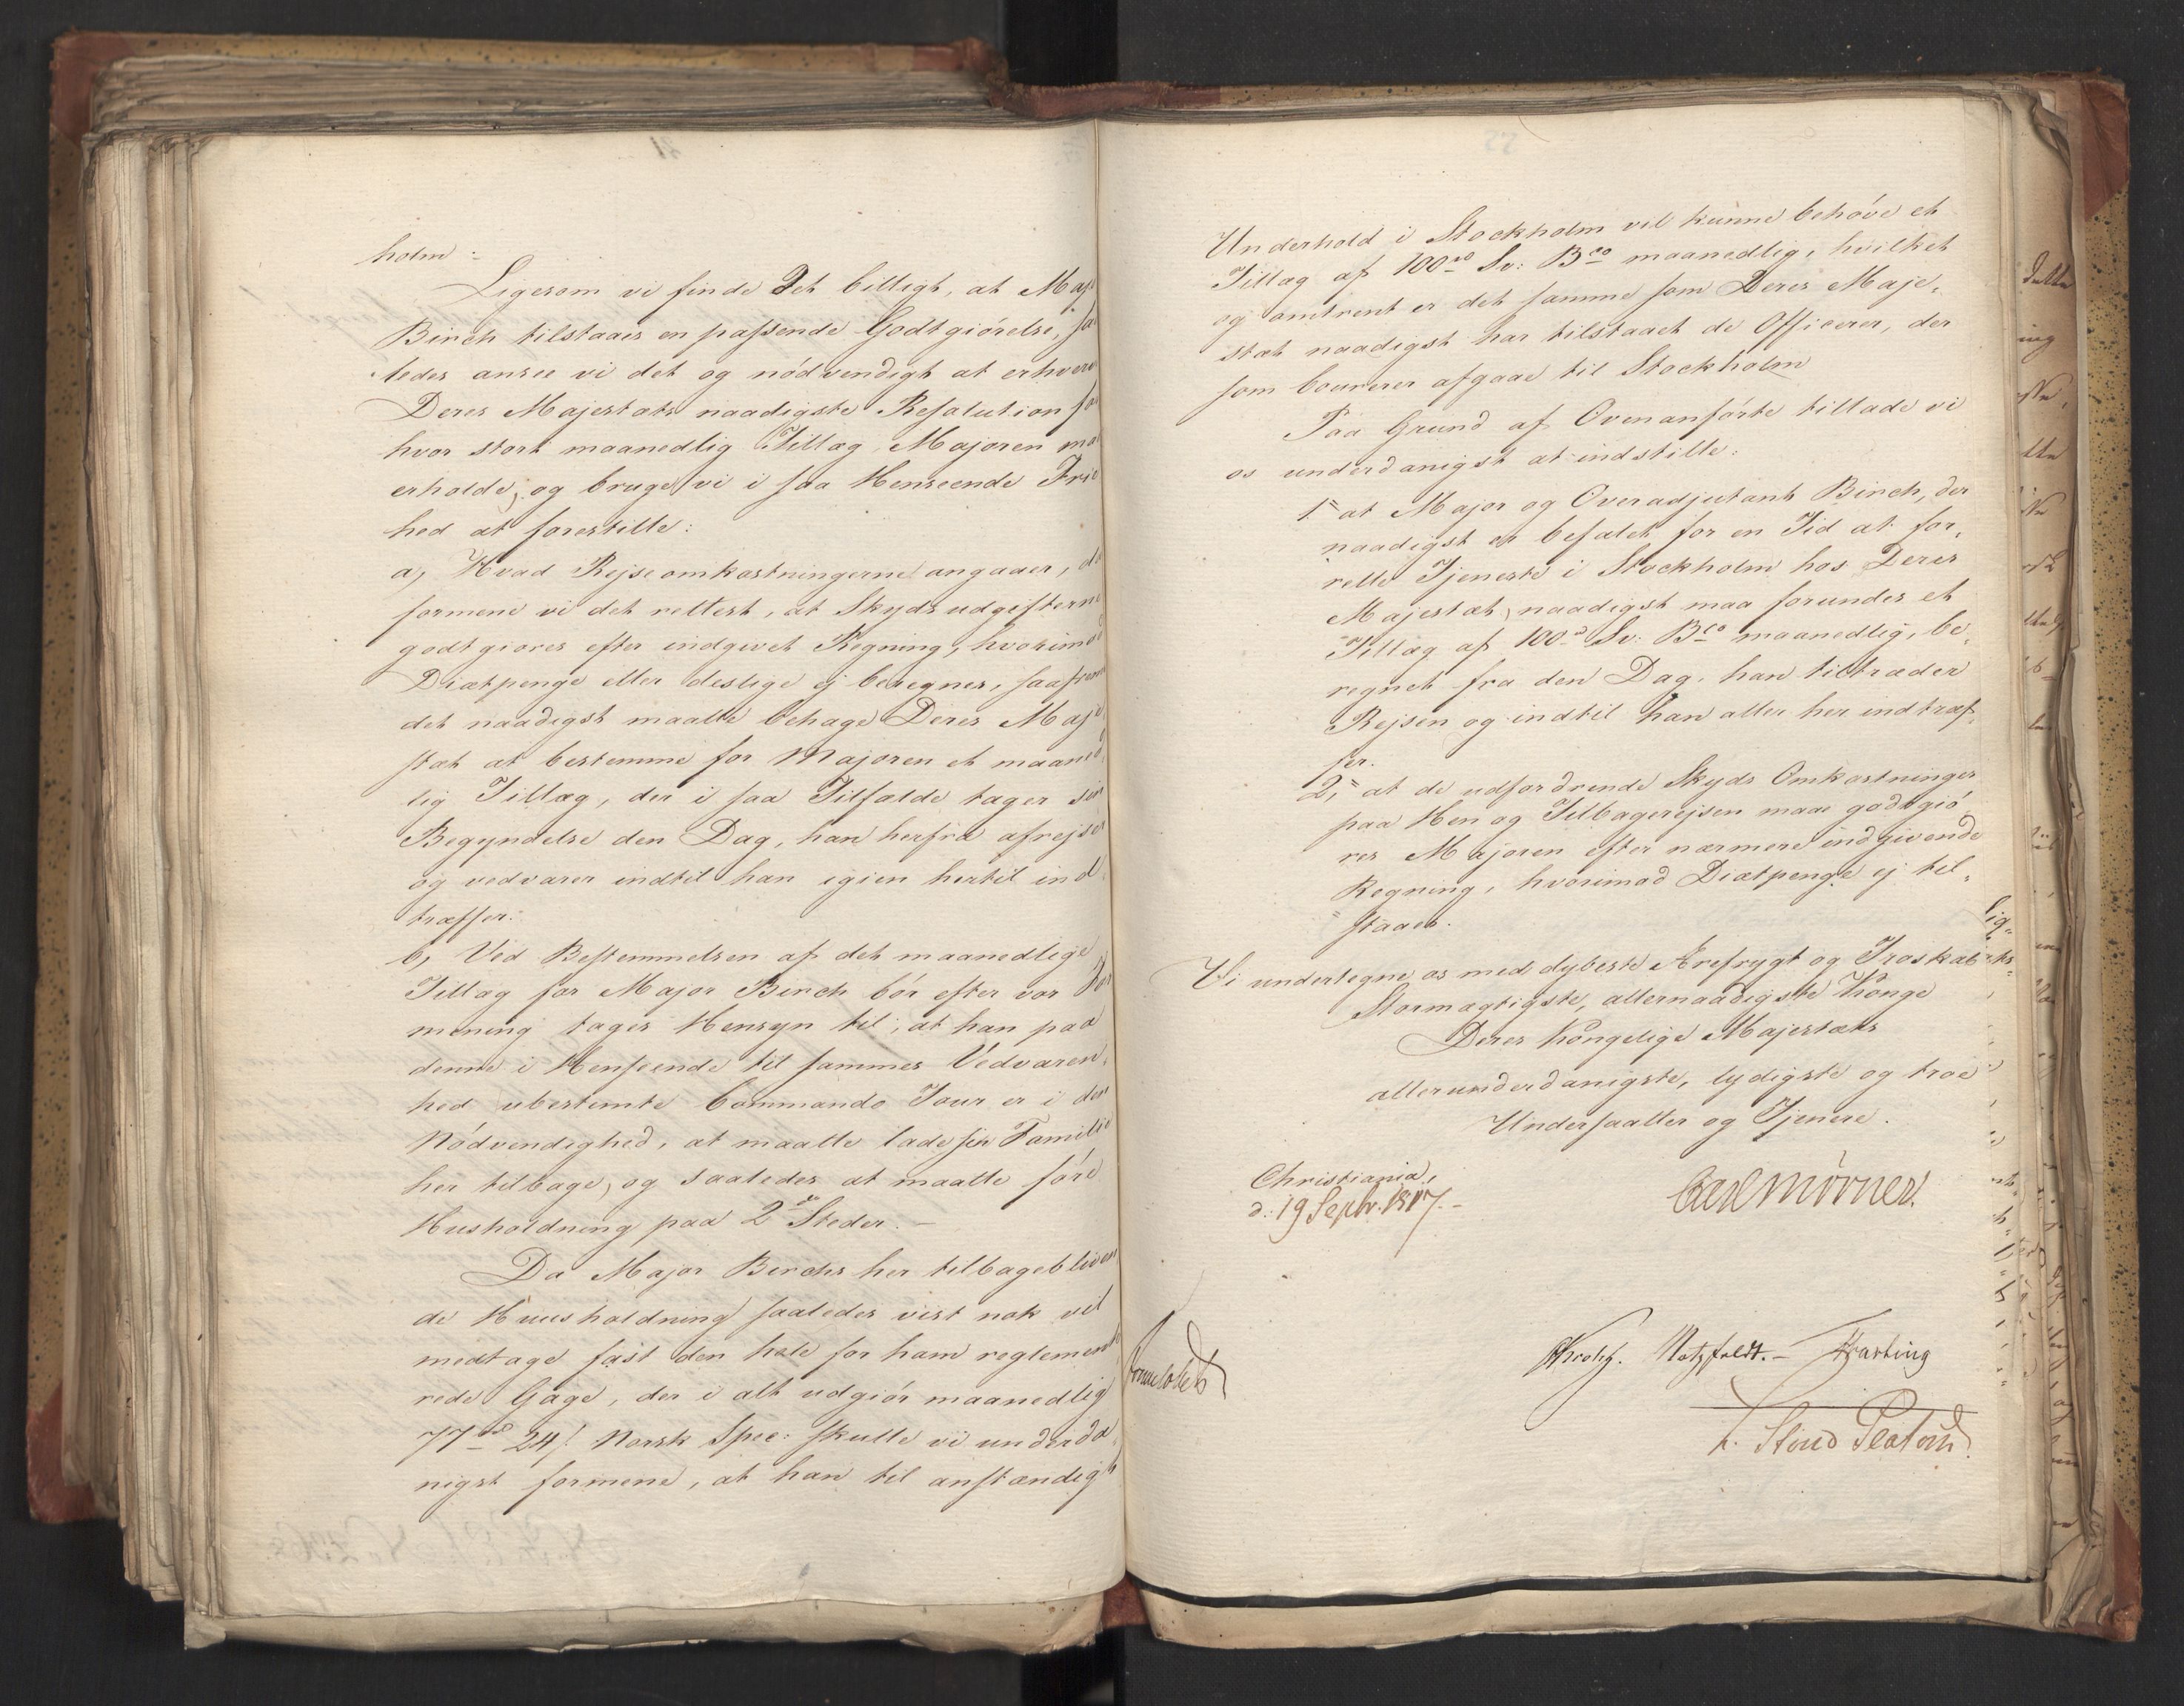 holm:
Ligesom vi finde Det billigt, at Maj
Birch tilstaaes en passende Godtgiörelse, saa
ledes ansee vi det og nödvendigt at erhverve
Deres Majestæts naadigste Resolution for
hvor stort maanedlig Tillæg Majoren maa
erholde, og bruge vi i saa Henseende Frie
hed at forestille:
a, Hvad Rejseomkostningerne angaaer, da
formene vi det rettest, at Skydsudgifterne
godtgiores efter indgivet Regning, hvorimod
Diætpenge eller deslige ej beregnes, saafrem
det naadigst maatte behage Deres Maje
stæt at bestemme for Majoren et maaned
lig Tillæg, der i saa Tilfælde tager sin
Begyndelse den Dag, han herfra afrejser
og vedvarer indtil han igien hertil ind
træffer.
b, Ved Bestemmelsen af det maanedlige
Tillæg for Major Birch bör efter vor For
mening tages Hensyn til, at han paa
denne i Henseende til sammes Vedvaren,
hed ubestemte Commando Tour er i den
Nödvendighed, at maatte lade sin Familie
her tilbage, og saaledes at maatte före
Husholdning paa 2de Steder. –
Da Major Birchs her tilbagebliven
de Huusholdning saaledes vist nok vil
medtage fast den hele for ham reglemente
rede Gage, der i alt udgiör maanedlig
77 24 ſ. Norsk Spec: skulle vi underda
nigst formene, at han til anstændigt
Underhold i Stockholm vil kunne behöve et
Tillæg af 100 Sv: Bco maanedlig, hvilket
og omtrent er det samme som Deres Maje,
stæt naadigst har tilstaaet de Officerer, der
som Courerer afgaae til Stockholm
Paa Grund af Ovenanförte tillade vi
os underdanigst at indstille:
1, at Major og Overadjutant Birch, der
naadigst er befalet for en Tid at for,
rette Tjeneste i Stockholm hos Deres
Majestæt, naadigst maa forundes et
Tillæg af 100 Sv: Bco maanedlig, be,
regnet fra den Dag, han tiltræder
Rejsen og indtil han atter her indtræf,
fer.
2, at de udfordrende Skyds Omkostninger
paa Hen og Tilbagerejsen maae godtgiö
res Majoren efter nærmere indgivende
Regning, hvorimod Diætpenge ej til,
staaes.
Vi undertegne os med dybeste Ærefrygt og Troskab
Stormægtigste, allernaadigste Konge
Deres Kongelige Majestæts
allerunderdanigste, lydigste og troe
Undersaatter og Tjenere.
Christiania,
d: 19 Septr. 1817. –
Carl Mörner.
Krohg. Motzfeldt. – Fasting
L. Stoud Platou